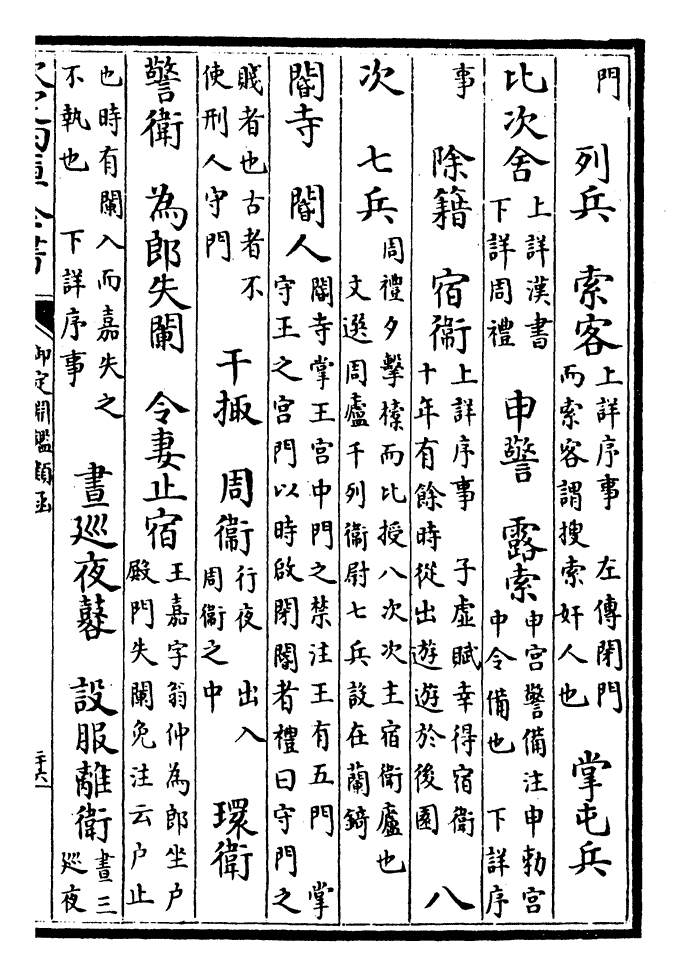 門　列兵　索客上詳序事　左傳閉門而索客謂搜索奸人也　掌屯兵
比次舍上詳漢書下詳周禮　申警　露索申宮警備注申勅宮中令備也　下詳序
事　除籍　宿衞上詳序事　子虛賦幸得宿衞十年有餘時從出遊遊於後園　八
次　七兵周禮夕擊㯓而比授八次次主宿衞廬也文選周廬千列衞尉七兵設在蘭錡
閽寺　閽人閽寺掌王宮中門之禁注王有五門　掌守王之宮門以時啟閉閽者禮曰守門之
賤者也古者不使刑人守門　干掫　周衞行夜　出入周衞之中　環衞
警衛　為郎失闌　令妻止宿王嘉字翁仲為郎坐户殿門失闌免注云户止
也時有闌入而嘉失之不執也　下詳序事　晝巡夜鼜　設服離衛晝三巡夜
御定淵鑑類函